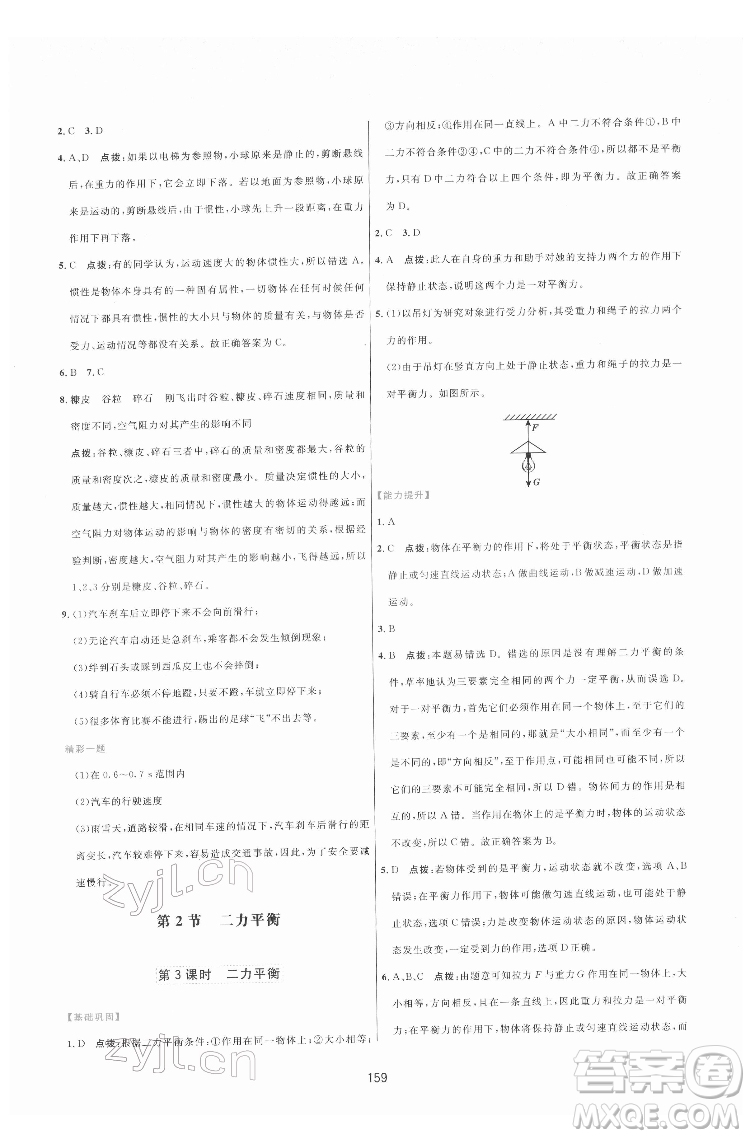 2. C  3. D
4. A,D  点拨:如果以电梯为参照物,小球原来是静止的,剪断悬线
后,在重力的作用下,它将竖直下落。若以地面为参照物,小球原
来是运动的,剪断悬线后,由于惯性,小球先上升一段距离,在重力
作用下再下落。
5. C  点拨:有的同学认为,运动速度大的物体惯性大,所以错选 A,
惯性是物体本身的一种固有属性,一切物体在任何时候、任何
情况下都有惯性,惯性的大小只与物体的质量有关,与物体是否
受力、运动情况均无关。故正确答案为 C。
6. B  7. C
8. 糠皮  谷粒  碎石  刚飞出时谷粒、糠皮、碎石速度相同,质量和
密度不同,空气阻力对其产生的影响不同
点拨:谷粒、糠皮、碎石三者中,碎石的质量和密度最大,谷粒的
质量和密度次之,糠皮的质量和密度最小。根据惯性的大小,质
量越大,惯性越大,相同情况下,惯性大的物体运动得越远;而
空气阻力对物体运动的影响与物体的密度有密切的关系,根据经
验判断,密度越小,空气阻力影响越大,飞得也就越近。所以
1、2、3 分别是糠皮、谷粒、碎石。
9. (1)汽车刹车后立即停下来不会向前滑行;
(2)无论汽车启动还是急刹车,都不会发生倾倒现象;
(3)绊到石头或踩到西瓜皮上都不会摔跤;
(4)骑自行车必须不停地蹬,只要不蹬,车就会立即停下来;
(5)很多体育比赛不能进行,踢出的足球“飞”不出去等。
精彩一题
(1)在 0.6~0.7 s 范围内
(2)汽车的行驶速度
(3)雨雪天,道路较滑,在相同车速下,汽车刹车后滑行的距
离变长,汽车较难停下来,容易造成交通事故,因此,为了安全要减
速慢行。
第 2 节  二力平衡
第 3 课时  二力平衡
【基础巩固】
1. D  点拨:根据二力平衡条件:①作用在同一物体上;②大小相等;
③方向相反;④作用在同一直线上。A 中二力不符合条件①,B 中
二力不符合条件③④,C 中的二力不符合条件④,所以不是平衡
力,只有 D 中的二力符合以上四个条件,是平衡力。故正确答案
为 D。
2. C  3. D
4. A  点拨:此人在自身的重力和助手对她的支持力两个力的作用下
保持静止状态,说明这两个力是一对平衡力。
5. (1)以吊灯为研究对象进行受力分析,其受重力和绳子的拉力两个
力的作用。
(2)由于吊灯在竖直方向上处于静止状态,重力和绳子的拉力是一
对平衡力。如图所示。
F
G
【能力提升】
1. A
2. C  点拨:物体在平衡力的作用下,将处于平衡状态,平衡状态是指
静止或匀速直线运动状态。A 做曲线运动、B 做减速运动、D 做加速
运动。
3. B
4. B  点拨:本题易错选 D。错选的原因是没有理解二力平衡的条
件,草率地认为三要素完全相同的两个力一定平衡,从而误选 D。
对于一对平衡力,首先它们必须作用在同一个物体上,其次,对于
力的三要素,它们的大小必须相等,就是“大小相同”,而方向必须相
反,即“方向相反”,至于作用点,可能相同,也可能不同,所以
它们的三要素不可能完全相同,所以 D 错。物体间力的作用是相互
的,所以 A 错。当作用力作用在不同的物体上时,物体的运动状态
不改变,所以 C 错。由此可知,只有 B 正确。
5. D  点拨:若物体受到的是平衡力,运动状态不会改变,选项 A、B
错误;在平衡力作用下,物体可能做匀速直线运动,也可能保持
静止,选项 C 错误;力是改变物体运动状态的原因,所以物体运动状
态发生改变,一定受到力的作用,选项 D 正确。
6. A、B、C  点拨:由题意可知拉力 F 与重力 G 作用在同一物体上,大
小相等,方向相反,作用在同一直线上,所以拉力与重力为平衡力;
在平衡力的作用下,物体将保持静止或匀速直线运动状态,所以
159
zyjl.cn
zyjl.cn
答案卷
MXQE.COM